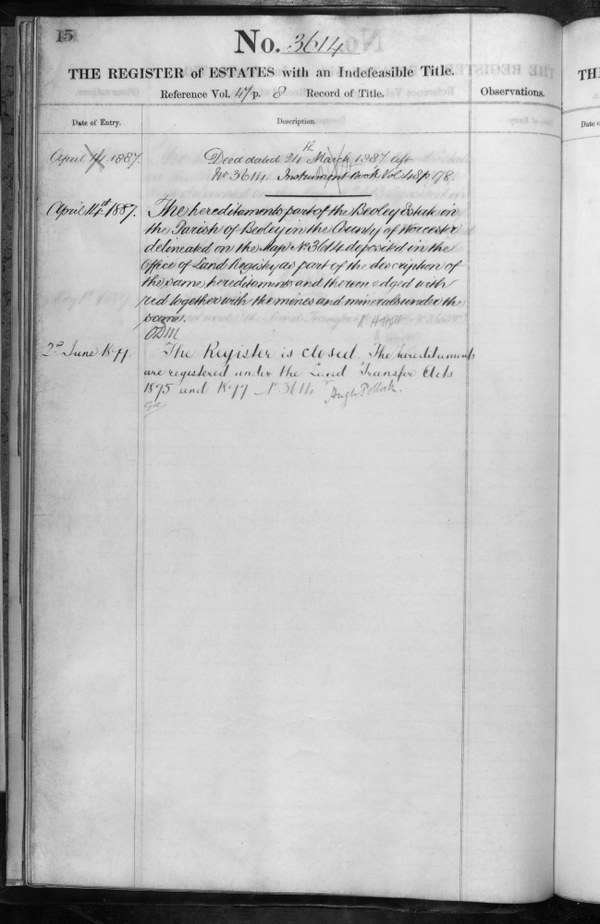 15
No. 3614
THE REGISTER of ESTATES with an Indefeasible Title.
Reference Vol. 47 p. 8 Record of Title.
Observations.
Date of Entry.
Description.
April 14 1887.
Deed dated 24th March 1887 left
No 3614. Instrument Book Vol 48 p 98
April 14th 1887.
The hereditaments part of the Beoley Estate in
the Parish of Beoley in the County of Worcester
delineated on the Map No 3614 deposited in the
Office of Land Registry as part of the description of
the same hereditaments and thereon edged with
red together with the mines and minerals under the
same.
2nd June 1899
The Register is closed. The hereditaments
are registered under the Land Transfer Acts
1875 and 1897 No 3614
Hugh Pollock.
TH
Date